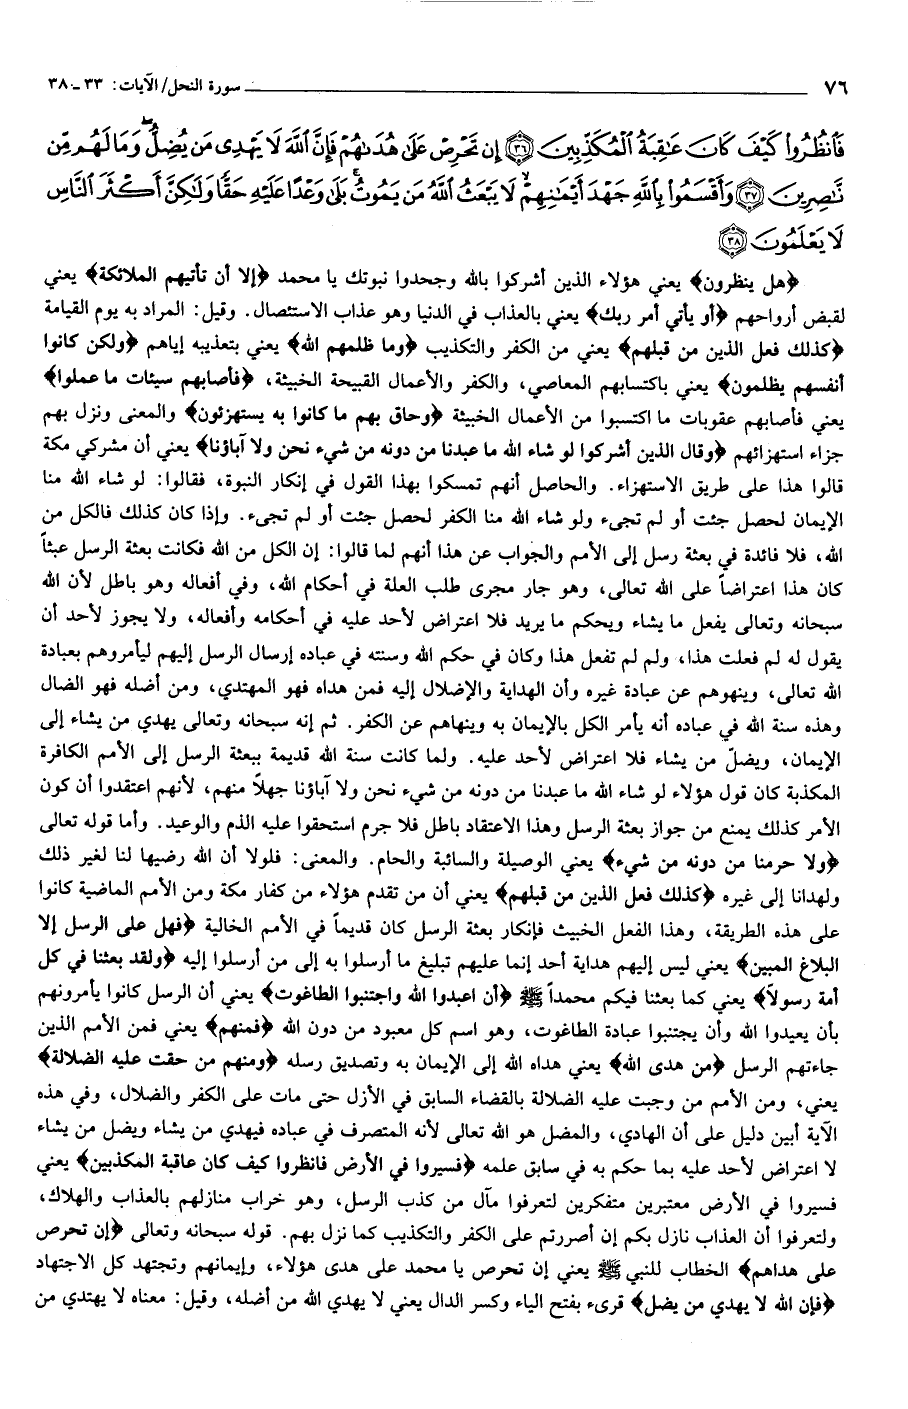 ٧٦ سورة النحل/ الآيات: ٣٣ ـ ٣٨
فَٱنظُرُوا۟ كَيْفَ كَانَ عَـٰقِبَةُ ٱلْمُكَذِّبِينَ ﴿٣٦﴾ إِن تَحْرِصْ عَلَىٰ هُدَىٰهُمْ فَإِنَّ ٱللَّهَ لَا يَهْدِى مَن يُضِلُّ ۖ وَمَا لَهُم مِّن
نَّـٰصِرِينَ ﴿٣٧﴾ وَأَقْسَمُوا۟ بِٱللَّهِ جَهْدَ أَيْمَـٰنِهِمْ ۙ لَا يَبْعَثُ ٱللَّهُ مَن يَمُوتُ ۚ بَلَىٰ وَعْدًا عَلَيْهِ حَقًّا وَلَـٰكِنَّ أَكْثَرَ ٱلنَّاسِ
لَا يَعْلَمُونَ ﴿٣٨﴾
﴿هل ينظرون﴾ يعني هؤلاء الذين أشركوا بالله وجحدوا نبوتك يا محمد ﴿إلا أن تأتيهم الملائكة﴾ يعني
لقبض أرواحهم ﴿أو يأتي أمر ربك﴾ يعني بالعذاب في الدنيا وهو عذاب الاستئصال. وقيل: المراد به يوم القيامة
﴿كذلك فعل الذين من قبلهم﴾ يعني من الكفر والتكذيب ﴿وما ظلمهم الله﴾ يعني بتعذيبه إياهم ﴿ولكن كانوا
أنفسهم يظلمون﴾ يعني باكتسابهم المعاصي، والكفر والأعمال القبيحة الخبيثة، ﴿فأصابهم سيئات ما عملوا﴾
يعني فأصابهم عقوبات ما اكتسبوا من الأعمال الخبيثة ﴿وحاق بهم ما كانوا به يستهزئون﴾ والمعنى ونزل بهم
جزاء استهزائهم ﴿وقال الذين أشركوا لو شاء الله ما عبدنا من دونه من شيء نحن ولا آباؤنا﴾ يعني أن مشركي مكة
قالوا هذا على طريق الاستهزاء. والحاصل أنهم تمسكوا بهذا القول في إنكار النبوة، فقالوا: لو شاء الله منا
الإيمان لحصل جئت أو لم تجىء ولو شاء الله منا الكفر لحصل جئت أو لم تجىء. وإذا كان كذلك فالكل من
الله، فلا فائدة في بعثة رسل إلى الأمم والجواب عن هذا أنهم لما قالوا: إن الكل من الله فكانت بعثة الرسل عبثاً
كان هذا اعتراضاً على الله تعالى، وهو جار مجرى طلب العلة في أحكام الله، وفي أفعاله وهو باطل لأن الله
سبحانه وتعالى يفعل ما يشاء ويحكم ما يريد فلا اعتراض لأحد عليه في أحكامه وأفعاله، ولا يجوز لأحد أن
يقول له لم فعلت هذا، ولم لم تفعل هذا وكان في حكم الله وسنته في عباده إرسال الرسل إليهم ليأمروهم بعبادة
الله تعالى، وينهوهم عن عبادة غيره وأن الهداية والإضلال إليه فمن هداه فهو المهتدي، ومن أضله فهو الضال
وهذه سنة الله في عباده أنه يأمر الكل بالإيمان به وينهاهم عن الكفر. ثم إنه سبحانه وتعالى يهدي من يشاء إلى
الإيمان، ويضلّ من يشاء فلا اعتراض لأحد عليه. ولما كانت سنة الله قديمة ببعثة الرسل إلى الأمم الكافرة
المكذبة كان قول هؤلاء لو شاء الله ما عبدنا من دونه من شيء نحن ولا آباؤنا جهلاً منهم، لأنهم اعتقدوا أن كون
الأمر كذلك يمنع من جواز بعثة الرسل وهذا الاعتقاد باطل فلا جرم استحقوا عليه الذم والوعيد. وأما قوله تعالى
﴿ولا حرمنا من دونه من شيء﴾ يعني الوصيلة والسائبة والحام. والمعنى: فلولا أن الله رضيها لنا لغير ذلك
ولهدانا إلى غيره ﴿كذلك فعل الذين من قبلهم﴾ يعني أن من تقدم هؤلاء من كفار مكة ومن الأمم الماضية كانوا
على هذه الطريقة، وهذا الفعل الخبيث فإنكار بعثة الرسل كان قديماً في الأمم الخالية ﴿فهل على الرسل إلا
البلاغ المبين﴾ يعني ليس إليهم هداية أحد إنما عليهم تبليغ ما أرسلوا به إلى من أرسلوا إليه ﴿ولقد بعثنا في كل
أمة رسولاً﴾ يعني كما بعثنا فيكم محمداً ﷺ ﴿أن اعبدوا الله واجتنبوا الطاغوت﴾ يعني أن الرسل كانوا يأمرونهم
بأن يعبدوا الله وأن يجتنبوا عبادة الطاغوت، وهو اسم كل معبود من دون الله ﴿فمنهم﴾ يعني فمن الأمم الذين
جاءتهم الرسل ﴿من هدى الله﴾ يعني هداه الله إلى الإيمان به وتصديق رسله ﴿ومنهم من حقت عليه الضلالة﴾
يعني، ومن الأمم من وجبت عليه الضلالة بالقضاء السابق في الأزل حتى مات على الكفر والضلال، وفي هذه
الآية أبين دليل على أن الهادي، والمضل هو الله تعالى لأنه المتصرف في عباده فيهدي من يشاء ويضل من يشاء
لا اعتراض لأحد عليه بما حكم به في سابق علمه ﴿فسيروا في الأرض فانظروا كيف كان عاقبة المكذبين﴾ يعني
فسيروا في الأرض معتبرين متفكرين لتعرفوا مآل من كذب الرسل، وهو خراب منازلهم بالعذاب والهلاك،
ولتعرفوا أن العذاب نازل بكم إن أصررتم على الكفر والتكذيب كما نزل بهم. قوله سبحانه وتعالى ﴿إن تحرص
على هداهم﴾ الخطاب للنبي ﷺ يعني إن تحرص يا محمد على هدى هؤلاء، وإيمانهم وتجتهد كل الاجتهاد
﴿فإن الله لا يهدي من يضل﴾ قرىء بفتح الياء وكسر الدال يعني لا يهدي الله من أضله، وقيل: معناه لا يهتدي من